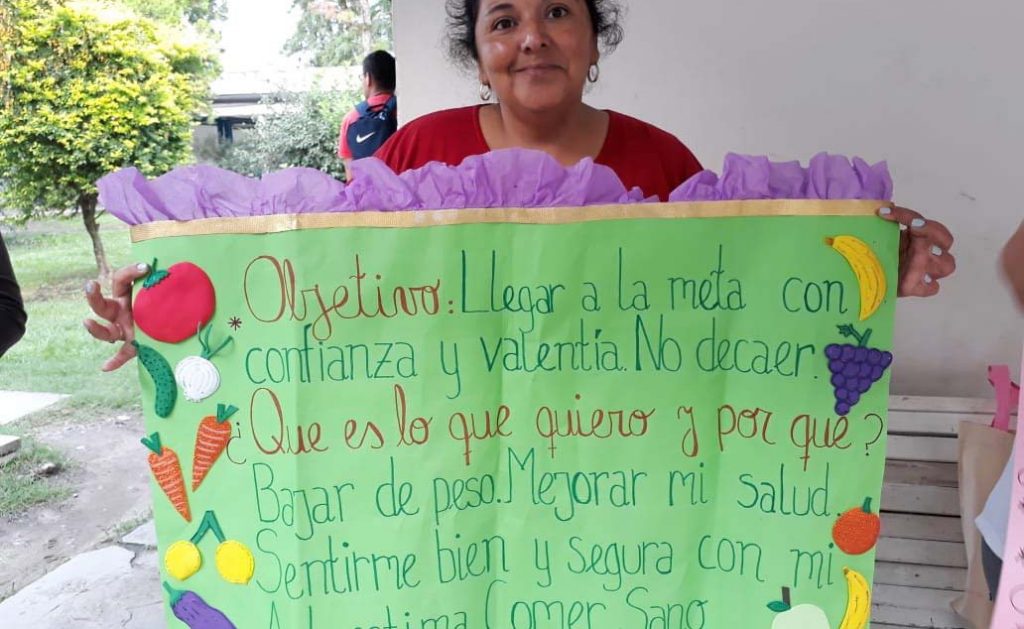 Objetivo: Llegar a la meta con
confianza y valentía. No decaer.
¿Que es lo que quiero y por qué?
Bajar de peso. Mejorar mi salud.
Sentirme bien y segura con mi
Autoestima. Comer Sano